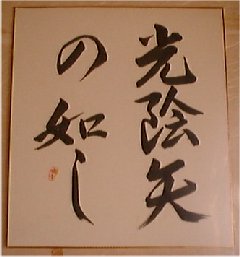 光陰矢
の如し